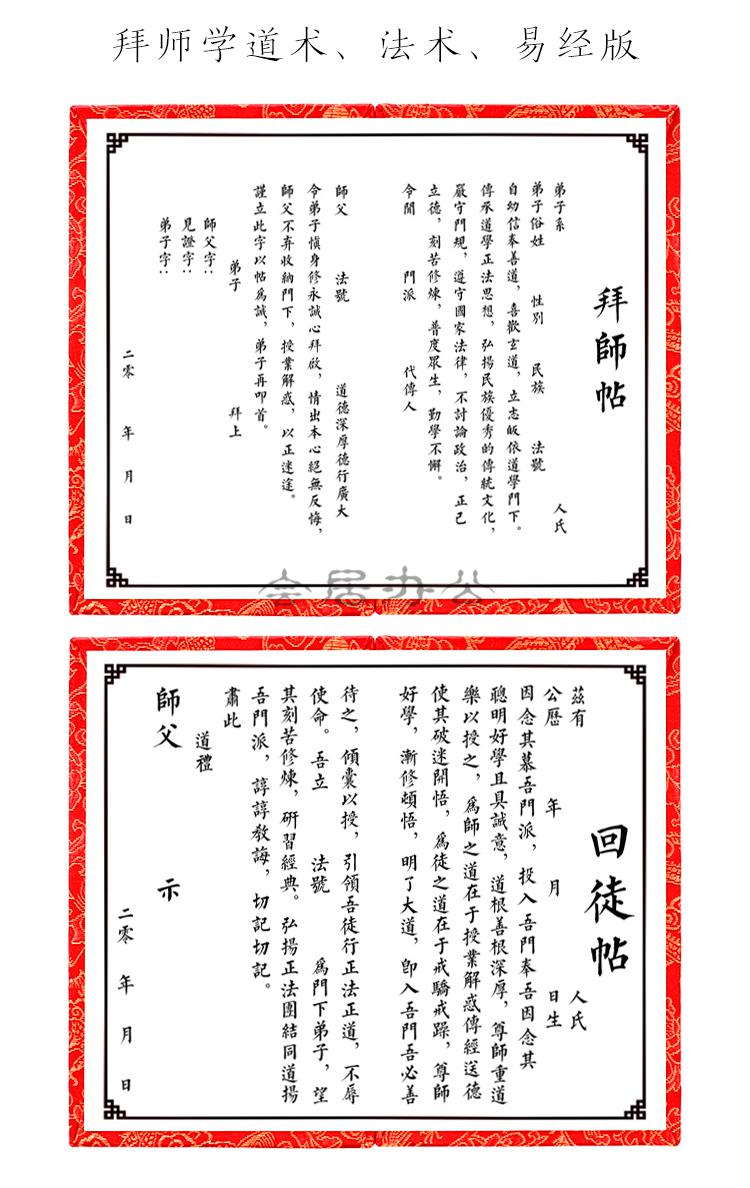 拜师学道术、法术、易经版
拜師帖
弟子系 人氏
弟子俗姓 性別 民族 法號
自幼信奉善道，喜歡玄道，立志皈依道學門下。
傳承道學正法思想，弘揚民族優秀的傳統文化，
嚴守門規，遵守國家法律，不討論政治，正己
立德，刻苦修煉，普度眾生，勤學不懈。
今聞 門派 代傳人
師父 法號 道德深厚德行廣大
令弟子慎身修永誠心拜啟，情出本心絕無反悔，
師父不弃收納門下，授業解惑，以正迷途。
謹立此字以帖爲誠，弟子再叩首。
弟子 拜上
師父字：
見證字：
弟子字：
二零 年 月 日
全居办公
回徒帖
茲有 人氏
公歷 年 月 日生
因念其慕吾門派，投入吾門奉吾因念其
聰明好學且具誠意，道根善根深厚，尊師重道
樂以授之，爲師之道在于授業解惑傳經送德
使其破迷開悟，爲徒之道在于戒驕戒躁，尊師
好學，漸修頓悟，明了大道，卽入吾門吾必善
待之，傾囊以授，引領吾徒行正法正道，不辱
使命。吾立 法號 爲門下弟子，望
其刻苦修煉，研習經典。弘揚正法團結同道揚
吾門派，諄諄教誨，切記切記。
肅此
道禮
師父 示
二零 年 月 日